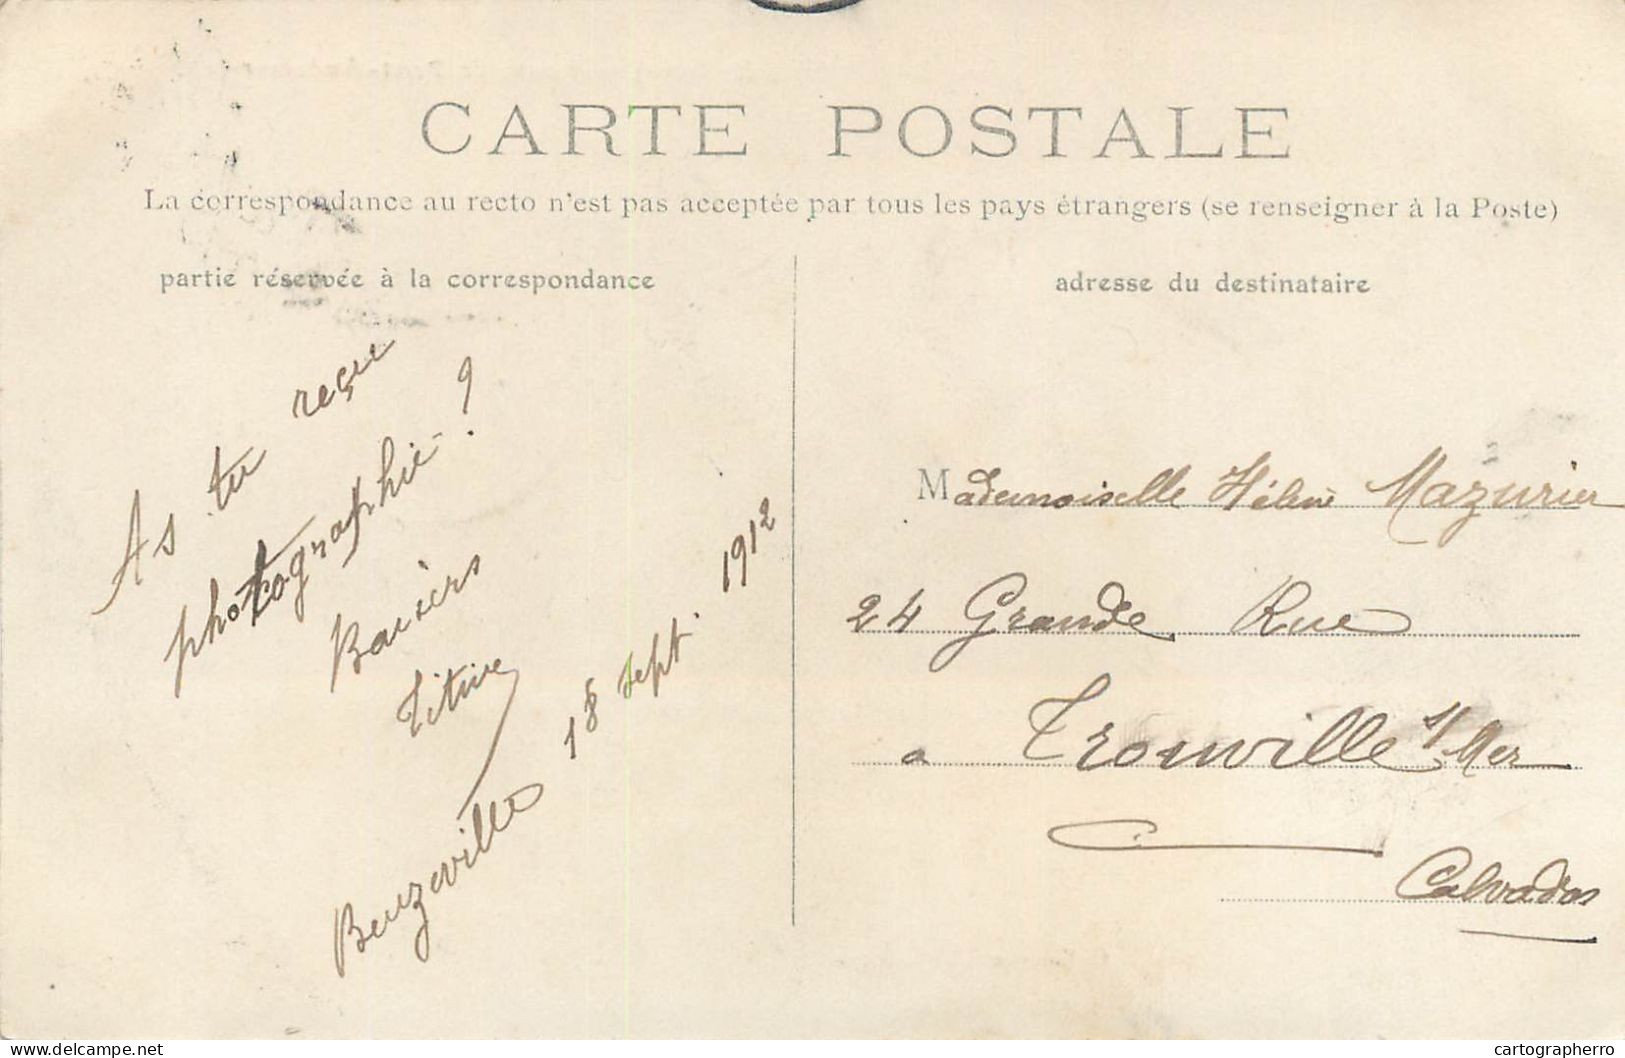 CARTE POSTALE
La correspondance au recto n'est pas acceptée par tous les pays étrangers (se renseigner à la Poste)
partie réservée à la correspondance
As tu reçue
photographie ?
Titine
Beuzeville 18 sept. 1912
adresse du destinataire
Mademoiselle Hélène Mazurier
24 Grande Rue
a Trouville s/ Mer
Calvados
delcampe.net
cartographerro